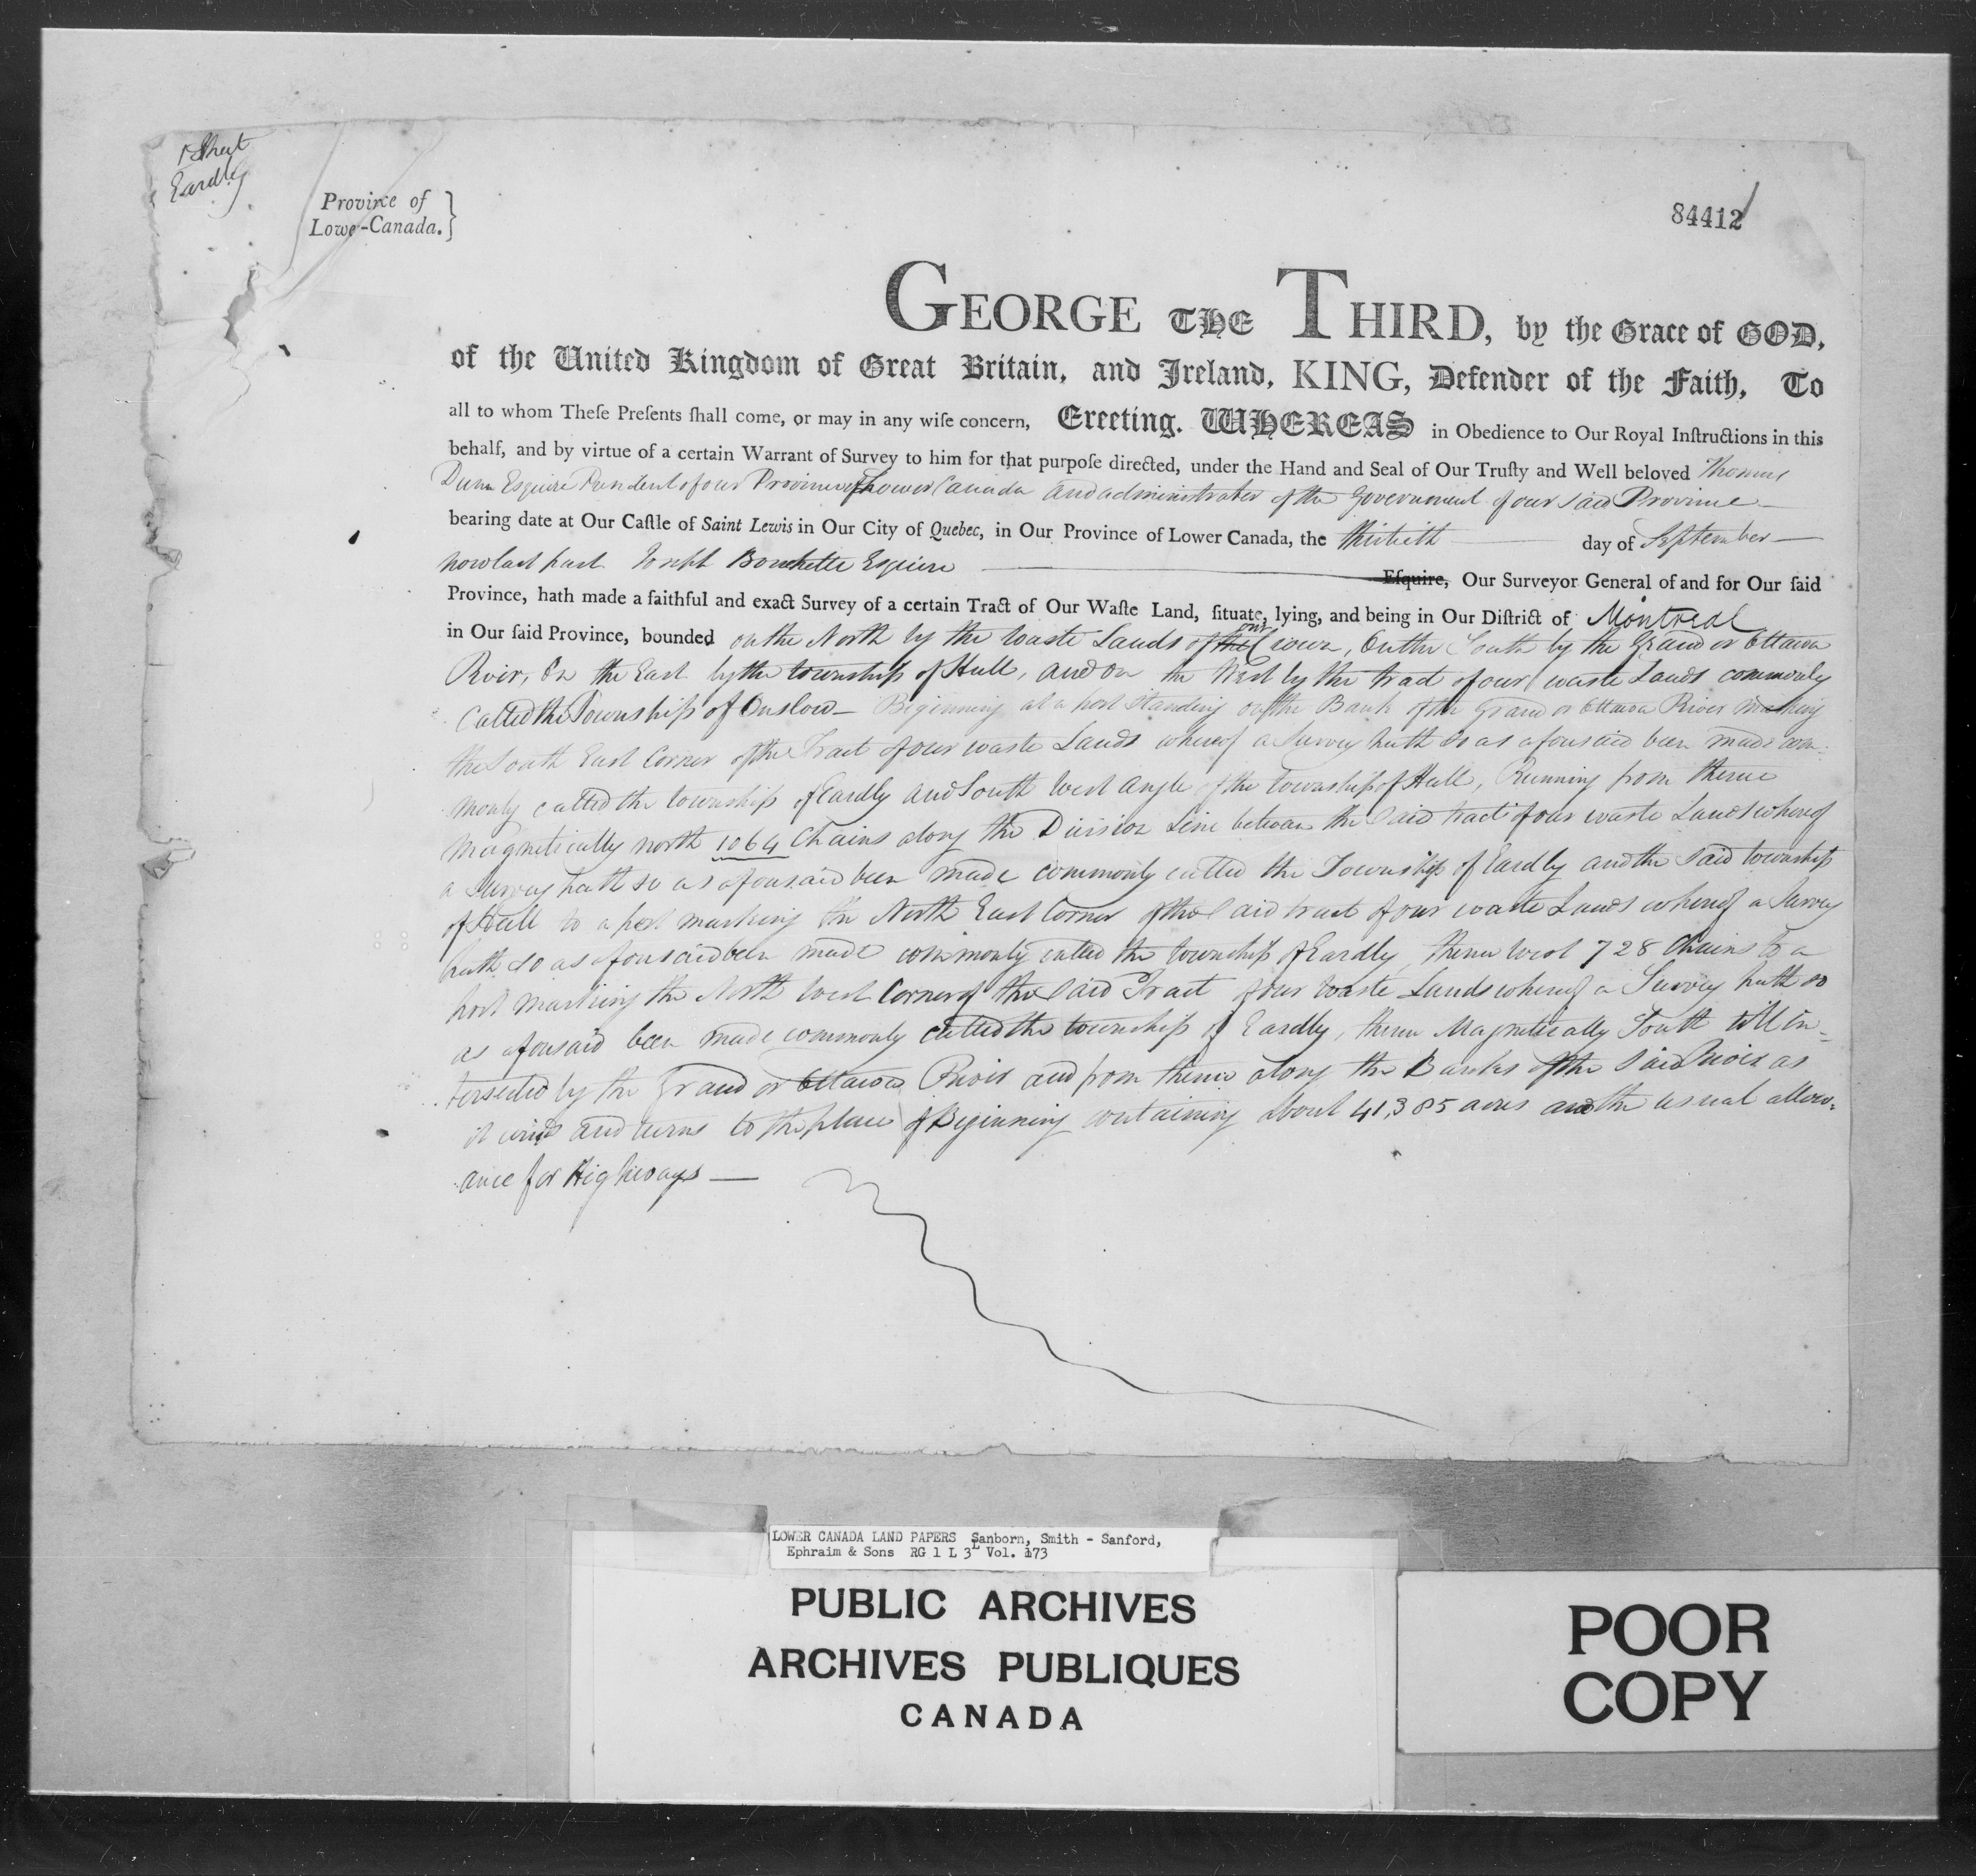 1 Sheet
Eardly
Province of
Lower-Canada.}
84412
GEORGE THE THIRD, by the Grace of GOD,
of the United Kingdom of Great Britain, and Ireland, KING, Defender of the Faith, To
all to whom Theſe Preſents ſhall come, or may in any wiſe concern, Greeting. WHEREAS in Obedience to Our Royal Inſtructions in this
behalf, and by virtue of a certain Warrant of Survey to him for that purpoſe directed, under the Hand and Seal of Our Truſty and Well beloved Thomas
Dunn Esquire President of our Province of Lower Canada and administrator of the Government of our said Province
bearing date at Our Caſtle of Saint Lewis in Our City of Quebec, in Our Province of Lower Canada, the thirtieth day of September
now last past Joseph Bouchette Esquire Eſquire, Our Surveyor General of and for Our ſaid
Province, hath made a faithful and exact Survey of a certain Tract of Our Waſte Land, ſituate, lying, and being in Our Diſtrict of Montreal
in Our ſaid Province, bounded on the North by the waste Lands of the our Crown, On the South by the Grand or Ottawa
River, On the East by the township of Hull, and on the West by the tract of our waste Lands commonly
called the Township of Onslow — Beginning at a post Standing on the Bank of the Grand or Ottawa River making
the South East Corner of the Tract of our waste Lands whereof a Survey hath so as aforesaid been made com-
monly called the township of Eardly and South West Angle of the township of Hull, Running from thence
Magnetically north 1064 Chains along the Division Line between the Said tract of our waste Lands whereof
a Survey hath so as aforesaid been made commonly called the Township of Eardly and the said township
of Hull to a post marking the North East Corner of the said tract of our waste Lands whereof a Survey
hath so as aforesaid been made commonly called the township of Eardly, thence West 728 Chains to a
post marking the North West Corner of the said Tract of our waste Lands whereof a Survey hath so
as aforesaid been made commonly called the township of Eardly, thence Magnetically South till in-
tersected by the Grand or Ottawa River and from thence along the Banks of the said River as
it winds and turns to the place of Beginning containing about 41,385 acres and the usual allow-
ance for Highways —
LOWER CANADA LAND PAPERS Sanborn, Smith - Sanford,
Ephraim & Sons RG 1 L 3L Vol. 173
PUBLIC ARCHIVES
ARCHIVES PUBLIQUES
CANADA
POOR
COPY